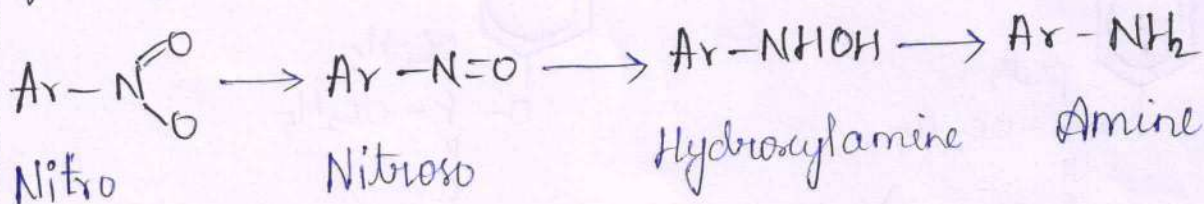 Ar-N(=O)O → Ar-N=O → Ar-NHOH → Ar-NH₂
Nitro Nitroso Hydroxylamine Amine